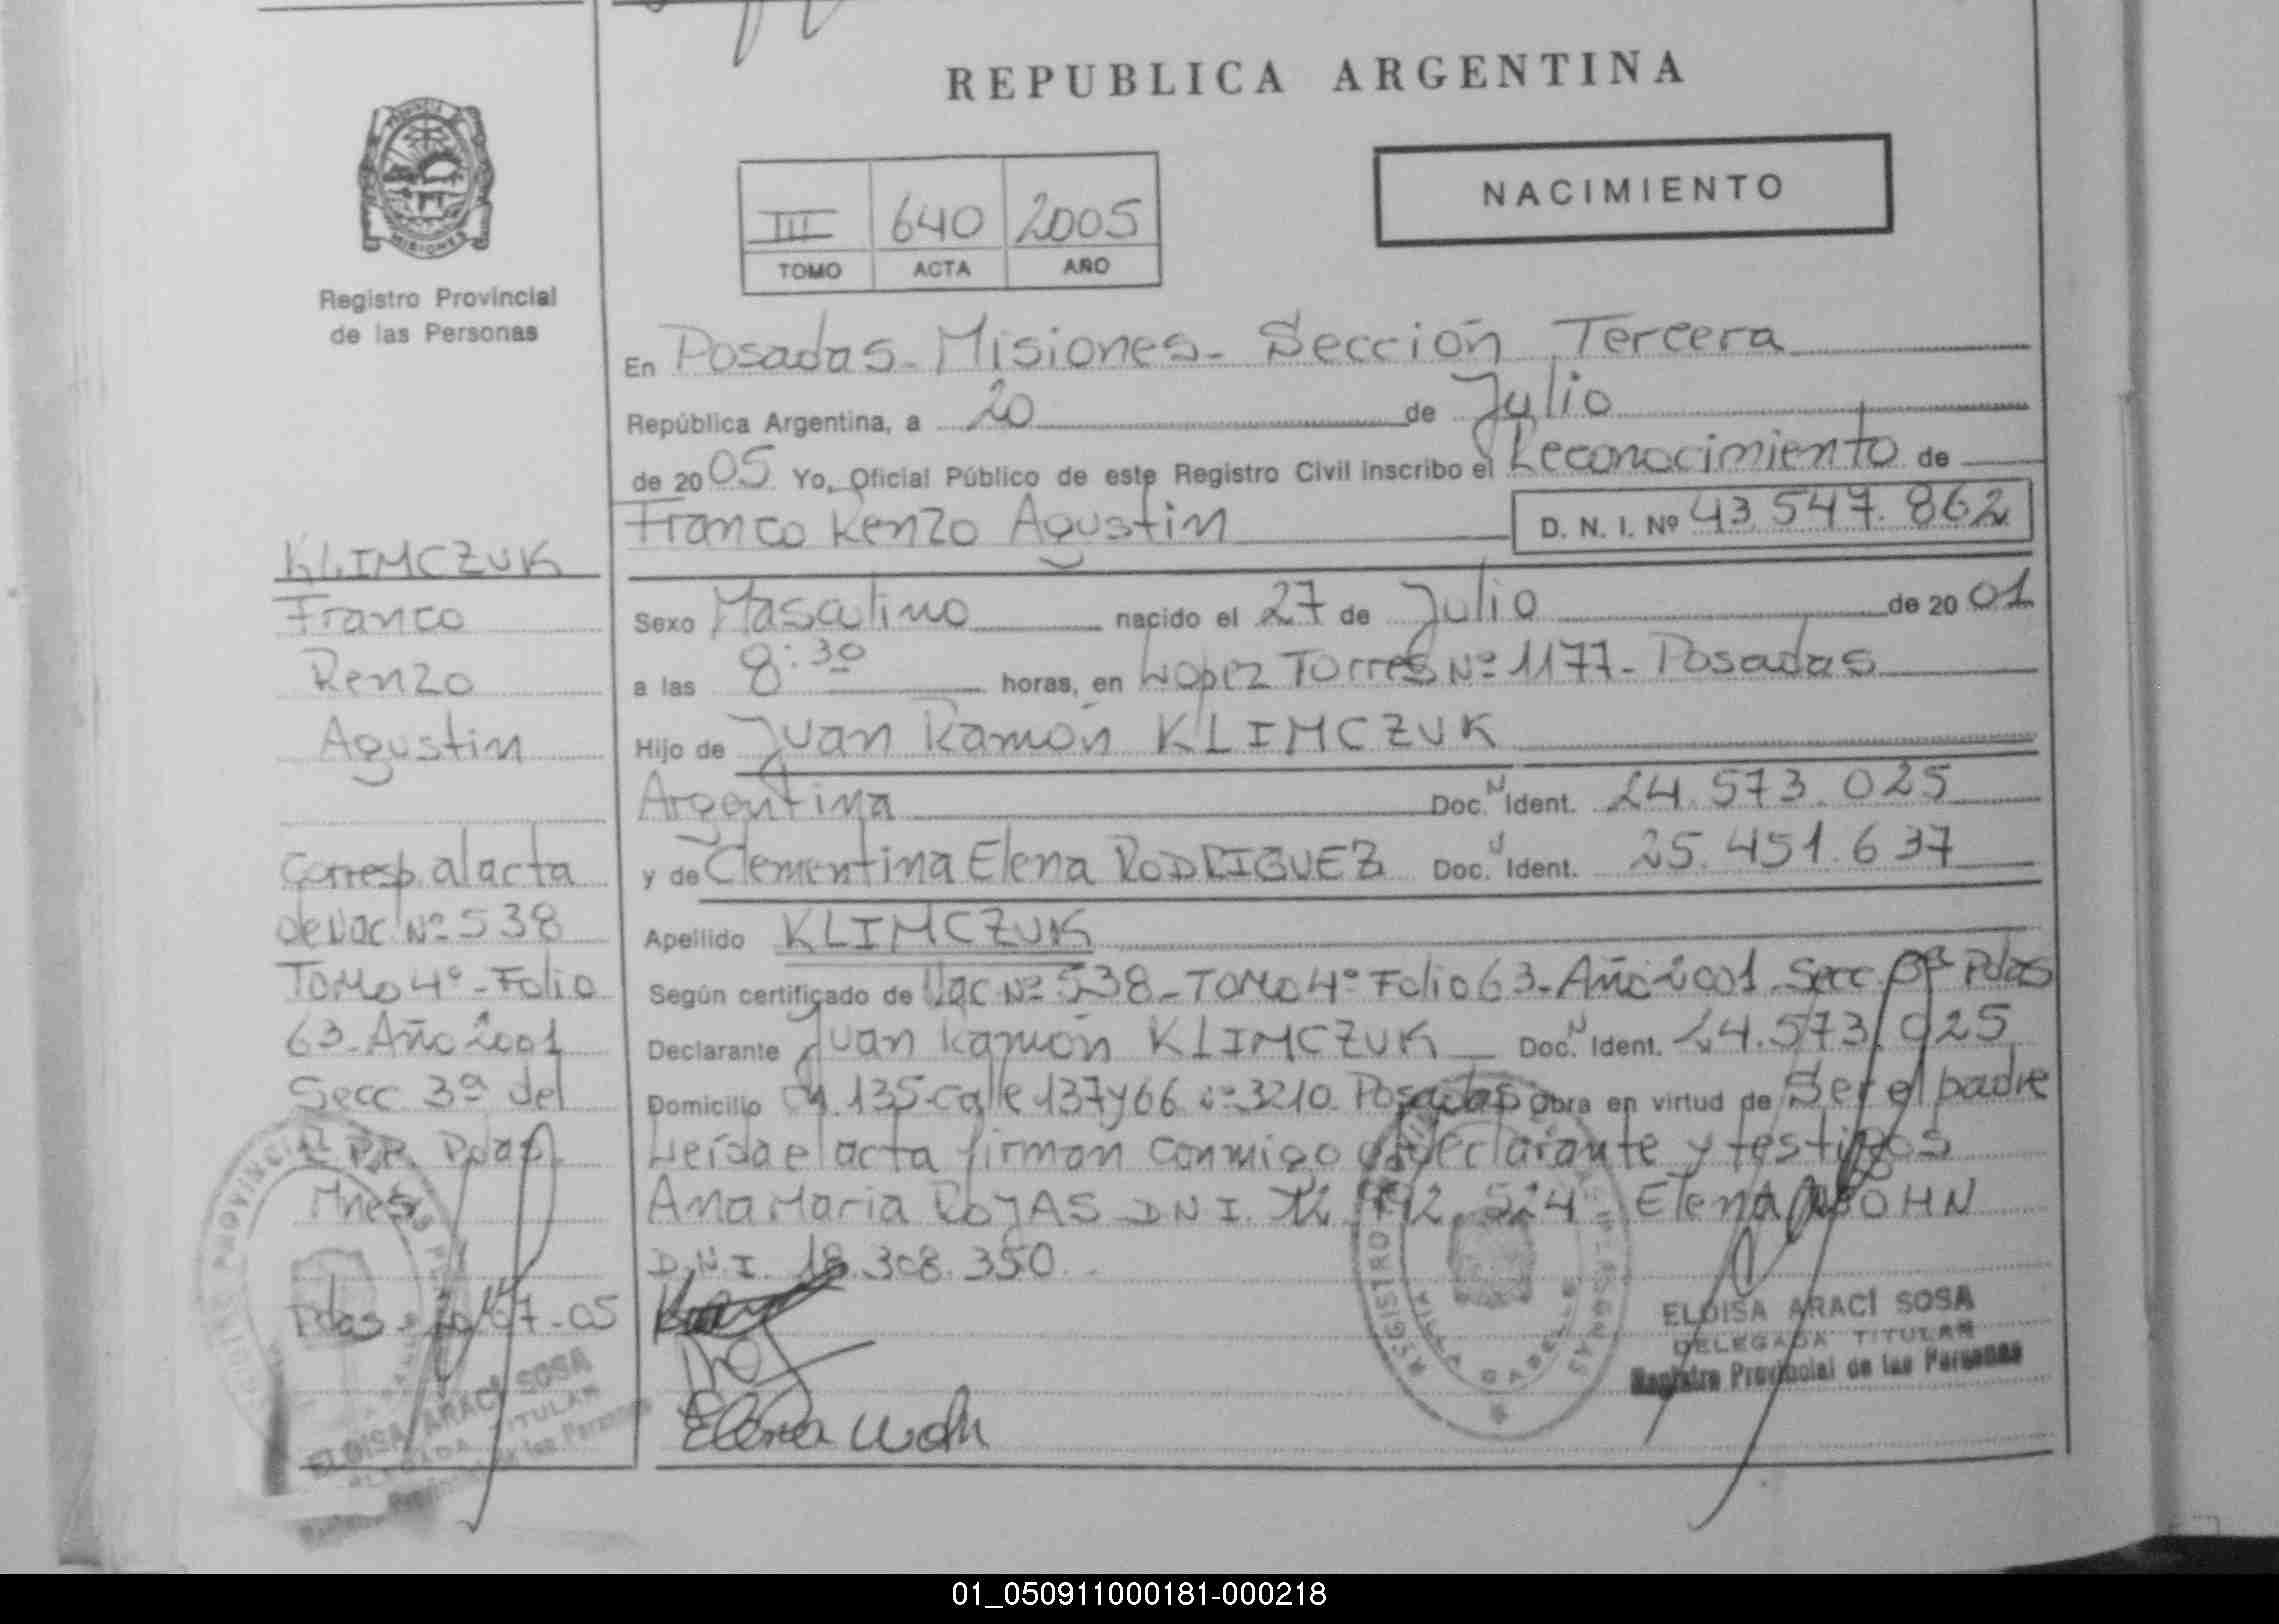 REPUBLICA ARGENTINA
NACIMIENTO
III 640 2005
TOMO ACTA AÑO
PROVINCIA
MISIONES
Registro Provincial
de las Personas
En Posadas - Misiones - Sección Tercera
República Argentina, a 20 de Julio
de 2005 Yo, Oficial Público de este Registro Civil inscribo el Reconocimiento de
Franco Renzo Agustin D. N. I. Nº 43.547.862
Sexo Masculino nacido el 27 de Julio de 2001
a las 8:30 horas, en Lopez Torres Nº 1177 - Posadas
Hijo de Juan Ramón KLIMCZUK
Argentina Doc. N Ident. 24.573.025
y de Clementina Elena RODRIGUEZ Doc. Ident. 25.451.637
Apellido KLIMCZUK
Según certificado de Nac Nº 538 - Tomo 4º Folio 63 - Año 2001 Secc 3ª Pdas
Declarante Juan Ramón KLIMCZUK Doc. N Ident. 24.573.025
Domicilio Ch. 135 - calle 137 y 66 nº 3210 Posadas Obra en virtud de Ser el padre
Leída el acta firman conmigo el declarante y testigos
Ana Maria ROJAS D.N.I. 524 Elena WOHN
D.N.I. 18.308.350
Elena Wohn
ELOISA ARACÍ SOSA
DELEGADA TITULAR
Registro Provincial de las Personas
REGISTRO
VILLA CABELLO
KLIMCZUK
Franco
Renzo
Agustin
Corresp. al acta
de Nac. Nº 538
Tomo 4º - Folio
63 - Año 2001
Secc 3ª del
R.P.P. Pdas
Mnes
Pdas - 20-07-05
ELOISA ARACÍ SOSA
DELEGADA TITULAR
01_050911000181-000218